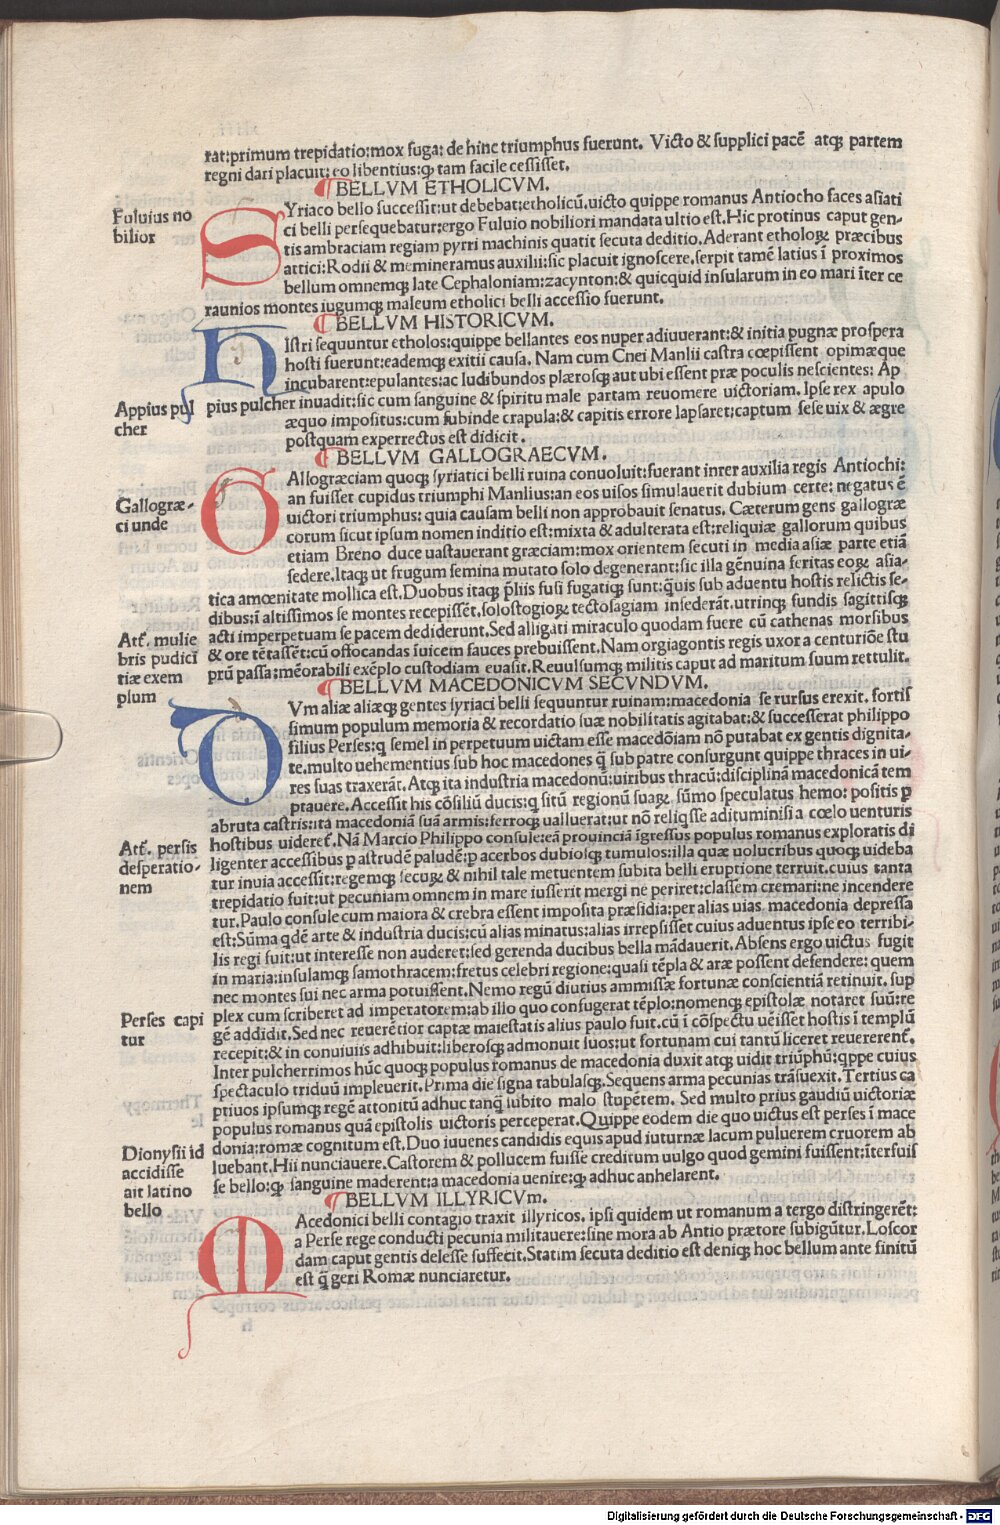 rat:primum trepidatio:mox fuga: de hinc triumphus fuerunt. Victo & supplici pacē atqꝫ partem
regni dari placuit: eo libentius:qꝫ tam facile cessisset.
¶BELLVM ETHOLICVM.
Fuluius no
bilior
SYriaco bello successit:ut debebat:etholicū.uicto quippe romanus Antiocho faces asiati
ci belli persequebatur:ergo Fuluio nobiliori mandata ultio est. Hic protinus caput gen-
tis ambraciam regiam pyrri machinis quatit secuta deditio. Aderant etholoꝝ præcibus
attici:Rodii & memineramus auxilii:sic placuit ignoscere.serpit tamē latius ī proximos
bellum omnemqꝫ late Cephaloniam:zacynton:& quicquid insularum in eo mari īter ce
raunios montes iugumqꝫ maleum etholici belli accessio fuerunt.
¶BELLVM HISTORICVM.
HIstri sequuntur etholos:quippe bellantes eos nuper adiuuerant:& initia pugnæ prospera
hosti fuerunt:eademqꝫ exitii causa. Nam cum Cnei Manlii castra cœpissent opimæque
incubarent:epulantes:ac ludibundos plærosqꝫ aut ubi essent præ poculis nescientes: Ap
Appius pul
cher
pius pulcher inuadit:sic cum sanguine & spiritu male partam reuomere uictoriam. Ipse rex apulo
æquo impositus:cum subinde crapula:& capitis errore lapsaret:captum sese uix & ægre
postquam experrectus est didicit.
¶BELLVM GALLOGRAECVM.
Gallogræ-
ci unde
GAllogræciam quoqꝫ syriatici belli ruina conuoluit:fuerant inrer auxilia regis Antiochi:
an fuisset cupidus triumphi Manlius:an eos uisos simulauerit dubium certe: negatus ē
uictori triumphus: quia causam belli non approbauit senatus. Cæterum gens gallogræ
corum sicut ipsum nomen inditio est:mixta & adulterata est:reliquiæ gallorum quibus
etiam Breno duce uastauerant græciam:mox orientem secuti in media asiæ parte etiā
sedere.Itaqꝫ ut frugum semina mutato solo degenerant:sic illa genuina feritas eoꝝ asia-
tica amœnitate mollica est. Duobus itaqꝫ pliis fusi fugatiqꝫ sunt:quis sub aduentu hostis relictis se-
dibus:ī altissimos se montes recepissēt.solostogioꝝ tectosagiam insederāt.utrinqꝫ fundis sagittisqꝫ
Att. mulie
bris pudici
tiæ exem
plum
acti imperpetuam se pacem dediderunt.Sed alligati miraculo quodam fuere cū cathenas morsibus
& ore tētassēt:cū offocandas īuicem fauces prebuissent.Nam orgiagontis regis uxor a centuriōe stu
prū passa:mēorabili exēplo custodiam euasit. Reuulsumqꝫ militis caput ad maritum suum rettulit.
¶BELLVM MACEDONICVM SECVNDVM.
DVm aliæ aliæqꝫ gentes syriaci belli sequuntur ruinam:macedonia se rursus erexit. fortis
simum populum memoria & recordatio suæ nobilitatis agitabat:& successerat philippo
filius Perses:q semel in perpetuum uictam esse macedōiam nō putabat ex gentis dignita-
te.multo uehementius sub hoc macedones q̄ sub patre consurgunt quippe thraces in ui-
res suas traxerāt. Atqꝫ ita industria macedonū:uiribus thracū:disciplinā macedonicā tem
ptauere.Accessit his cōsiliū ducis:q situ regionū suaꝝ sūmo speculatus hemo: positis ꝑ
abruta castris:ita macedoniā suā armis:ferroqꝫ uallauerat:ut nō reliqsse adituminisi a cœlo uenturis
Att. persis
desperatio-
nem
hostibus uideret. Nā Marcio Philippo consule:eā prouinciā īgressus populus romanus exploratis di
ligenter accessibus ꝑ astrudē paludē:ꝑ acerbos dubiosqꝫ tumulos:illa quæ uolucribus quoqꝫ uideba
tur inuia accessit:regemqꝫ secuꝝ & nihil tale metuentem subita belli eruptione terruit.cuius tanta
trepidatio fuit:ut pecuniam omnem in mare iusserit mergi ne periret:classem cremari:ne incendere
tur.Paulo consule cum maiora & crebra essent imposita præsidia:per alias uias macedonia depressa
est:Sūma qdē arte & industria ducis:cū alias minatus:alias irrepsisset cuius aduentus ipse eo terribi-
lis regi fuit:ut interesse non auderet:sed gerenda ducibus bella mādauerit. Absens ergo uictus fugit
in maria:insulamqꝫ samothracem:fretus celebri regione:quasi tēpla & aræ possent defendere: quem
nec montes sui nec arma potuissent.Nemo regū diutius ammissæ fortunæ conscientiā retinuit. sup
Perses capi
tur
plex cum scriberet ad imperatorem:ab illo quo confugerat tēplo:nomenqꝫ epistolæ notaret suū:re
gē addidit.Sed nec reuerētior captæ maiestatis alius paulo fuit.cū ī cōspectu uēisset hostis ī templū
recepit:& in conuiuiis adhibuit:liberosqꝫ admonuit suos:ut fortunam cui tantū liceret reuererent.
Inter pulcherrimos hūc quoqꝫ populus romanus de macedonia duxit atqꝫ uidit triūphū:qppe cuius
spectaculo triduū impleuerit.Prima die signa tabulasqꝫ.Sequens arma pecunias trāsuexit.Tertius ca
ptiuos ipsumqꝫ regē attonitū adhuc tanq̄ subito malo stupētem. Sed multo prius gaudiū uictoriæ
populus romanus quā epistolis uictoris perceperat.Quippe eodem die quo uictus est perses ī mace
Dionysii id
accidisse
ait latino
bello
donia:romæ cognitum est.Duo iuuenes candidis equis apud iuturnæ lacum puluerem cruorem ab
luebant.Hii nunciauere.Castorem & pollucem fuisse creditum uulgo quod gemini fuissent:iterfuis
se bello:qꝫ sanguine maderent:a macedonia uenire:qꝫ adhuc anhelarent.
¶BELLVM ILLYRICVm.
MAcedonici belli contagio traxit illyricos. ipsi quidem ut romanum a tergo distringerēt:
a Perse rege conducti pecunia militauere:sine mora ab Antio prætore subigūtur.Loscor
dam caput gentis delesse suffecit.Statim secuta deditio est deniqꝫ hoc bellum ante finitū
est q̄ geri Romæ nunciaretur.
Digitalisierung gefördert durch die Deutsche Forschungsgemeinschaft - DFG